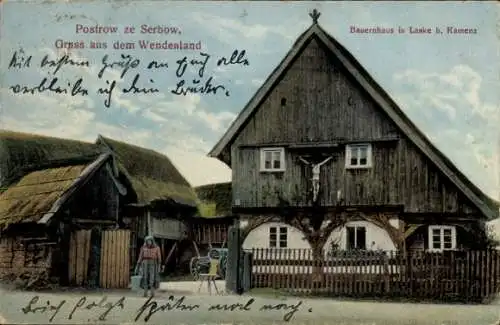 Postrow ze Serbow.
Gruss aus dem Wendenland
Bauernhaus in Laske b. Kamenz
Mit besten Gruß an euch alle
verbleibe ich dein Bruder.
Brief folgt später nach